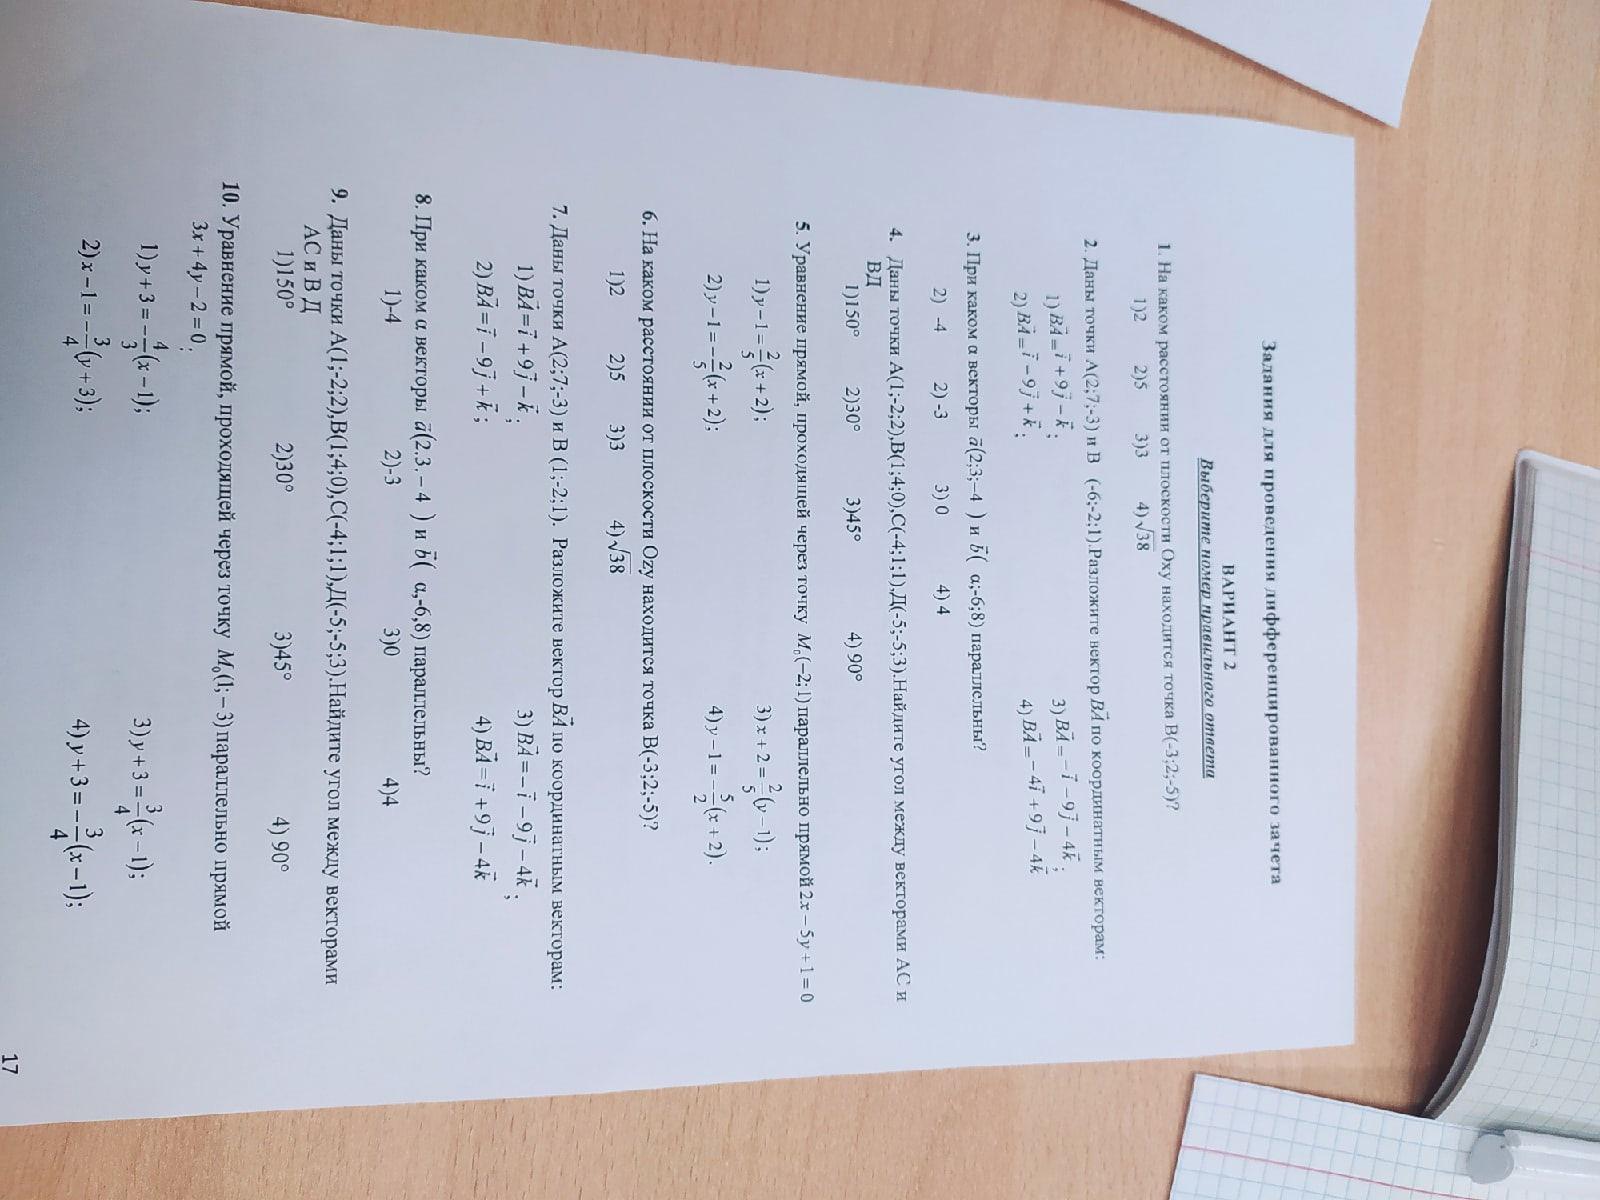 Задания для проведения дифференцированного зачета
ВАРИАНТ 2
Выберите номер правильного ответа
1. На каком расстоянии от плоскости Oxy находится точка B(-3;2;-5)?
1)2 2)5 3)3 4)√38
2. Даны точки A(2;7;-3) и B (-6;-2;1).Разложите вектор B⃗A по координатным векторам:
1) B⃗A = i⃗ + 9j⃗ − k⃗ ; 3) B⃗A = −i⃗ − 9j⃗ − 4k⃗ ;
2) B⃗A = i⃗ − 9j⃗ + k⃗ ; 4) B⃗A = −4i⃗ + 9j⃗ − 4k⃗
3. При каком α векторы a⃗(2;3;−4 ) и b⃗( α;-6;8) параллельны?
2) -4 2) -3 3) 0 4) 4
4. Даны точки A(1;-2;2),B(1;4;0),C(-4;1;1),Д(-5;-5;3).Найдите угол между векторами AC и
ВД
1)150° 2)30° 3)45° 4) 90°
5. Уравнение прямой, проходящей через точку M₀(−2;1) параллельно прямой 2x − 5y + 1 = 0
1) y − 1 = 2/5(x + 2); 3) x + 2 = 2/5(y − 1);
2) y − 1 = −2/5(x + 2); 4) y − 1 = −5/2(x + 2).
6. На каком расстоянии от плоскости Ozy находится точка B(-3;2;-5)?
1)2 2)5 3)3 4)√38
7. Даны точки A(2;7;-3) и B (1;-2;1). Разложите вектор B⃗A по координатным векторам:
1) B⃗A = i⃗ + 9j⃗ − k⃗ ; 3) B⃗A = −i⃗ − 9j⃗ − 4k⃗ ;
2) B⃗A = i⃗ − 9j⃗ + k⃗ ; 4) B⃗A = i⃗ + 9j⃗ − 4k⃗
8. При каком α векторы a⃗(2,3,−4 ) и b⃗( α,-6,8) параллельны?
1)-4 2)-3 3)0 4)4
9. Даны точки A(1;-2;2),B(1;4;0),C(-4;1;1),Д(-5;-5;3).Найдите угол между векторами
AC и В Д
1)150° 2)30° 3)45° 4) 90°
10. Уравнение прямой, проходящей через точку M₀(1;−3) параллельно прямой
3x + 4y − 2 = 0.
1) y + 3 = −4/3(x − 1); 3) y + 3 = 3/4(x − 1);
2) x − 1 = −3/4(y + 3); 4) y + 3 = −3/4(x − 1);
17